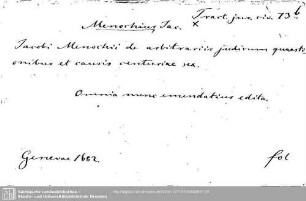 Tract. jur. civ. 73 b
Menochius Jac. x
Jacobi Menochii de arbitrariis judicum quaesti
onibus et causis centuriae sex.
Omnia nunc emendatius edita.
Genevae 1682. fol
Sächsische Landesbibliothek -
Staats- und Universitätsbibliothek Dresden